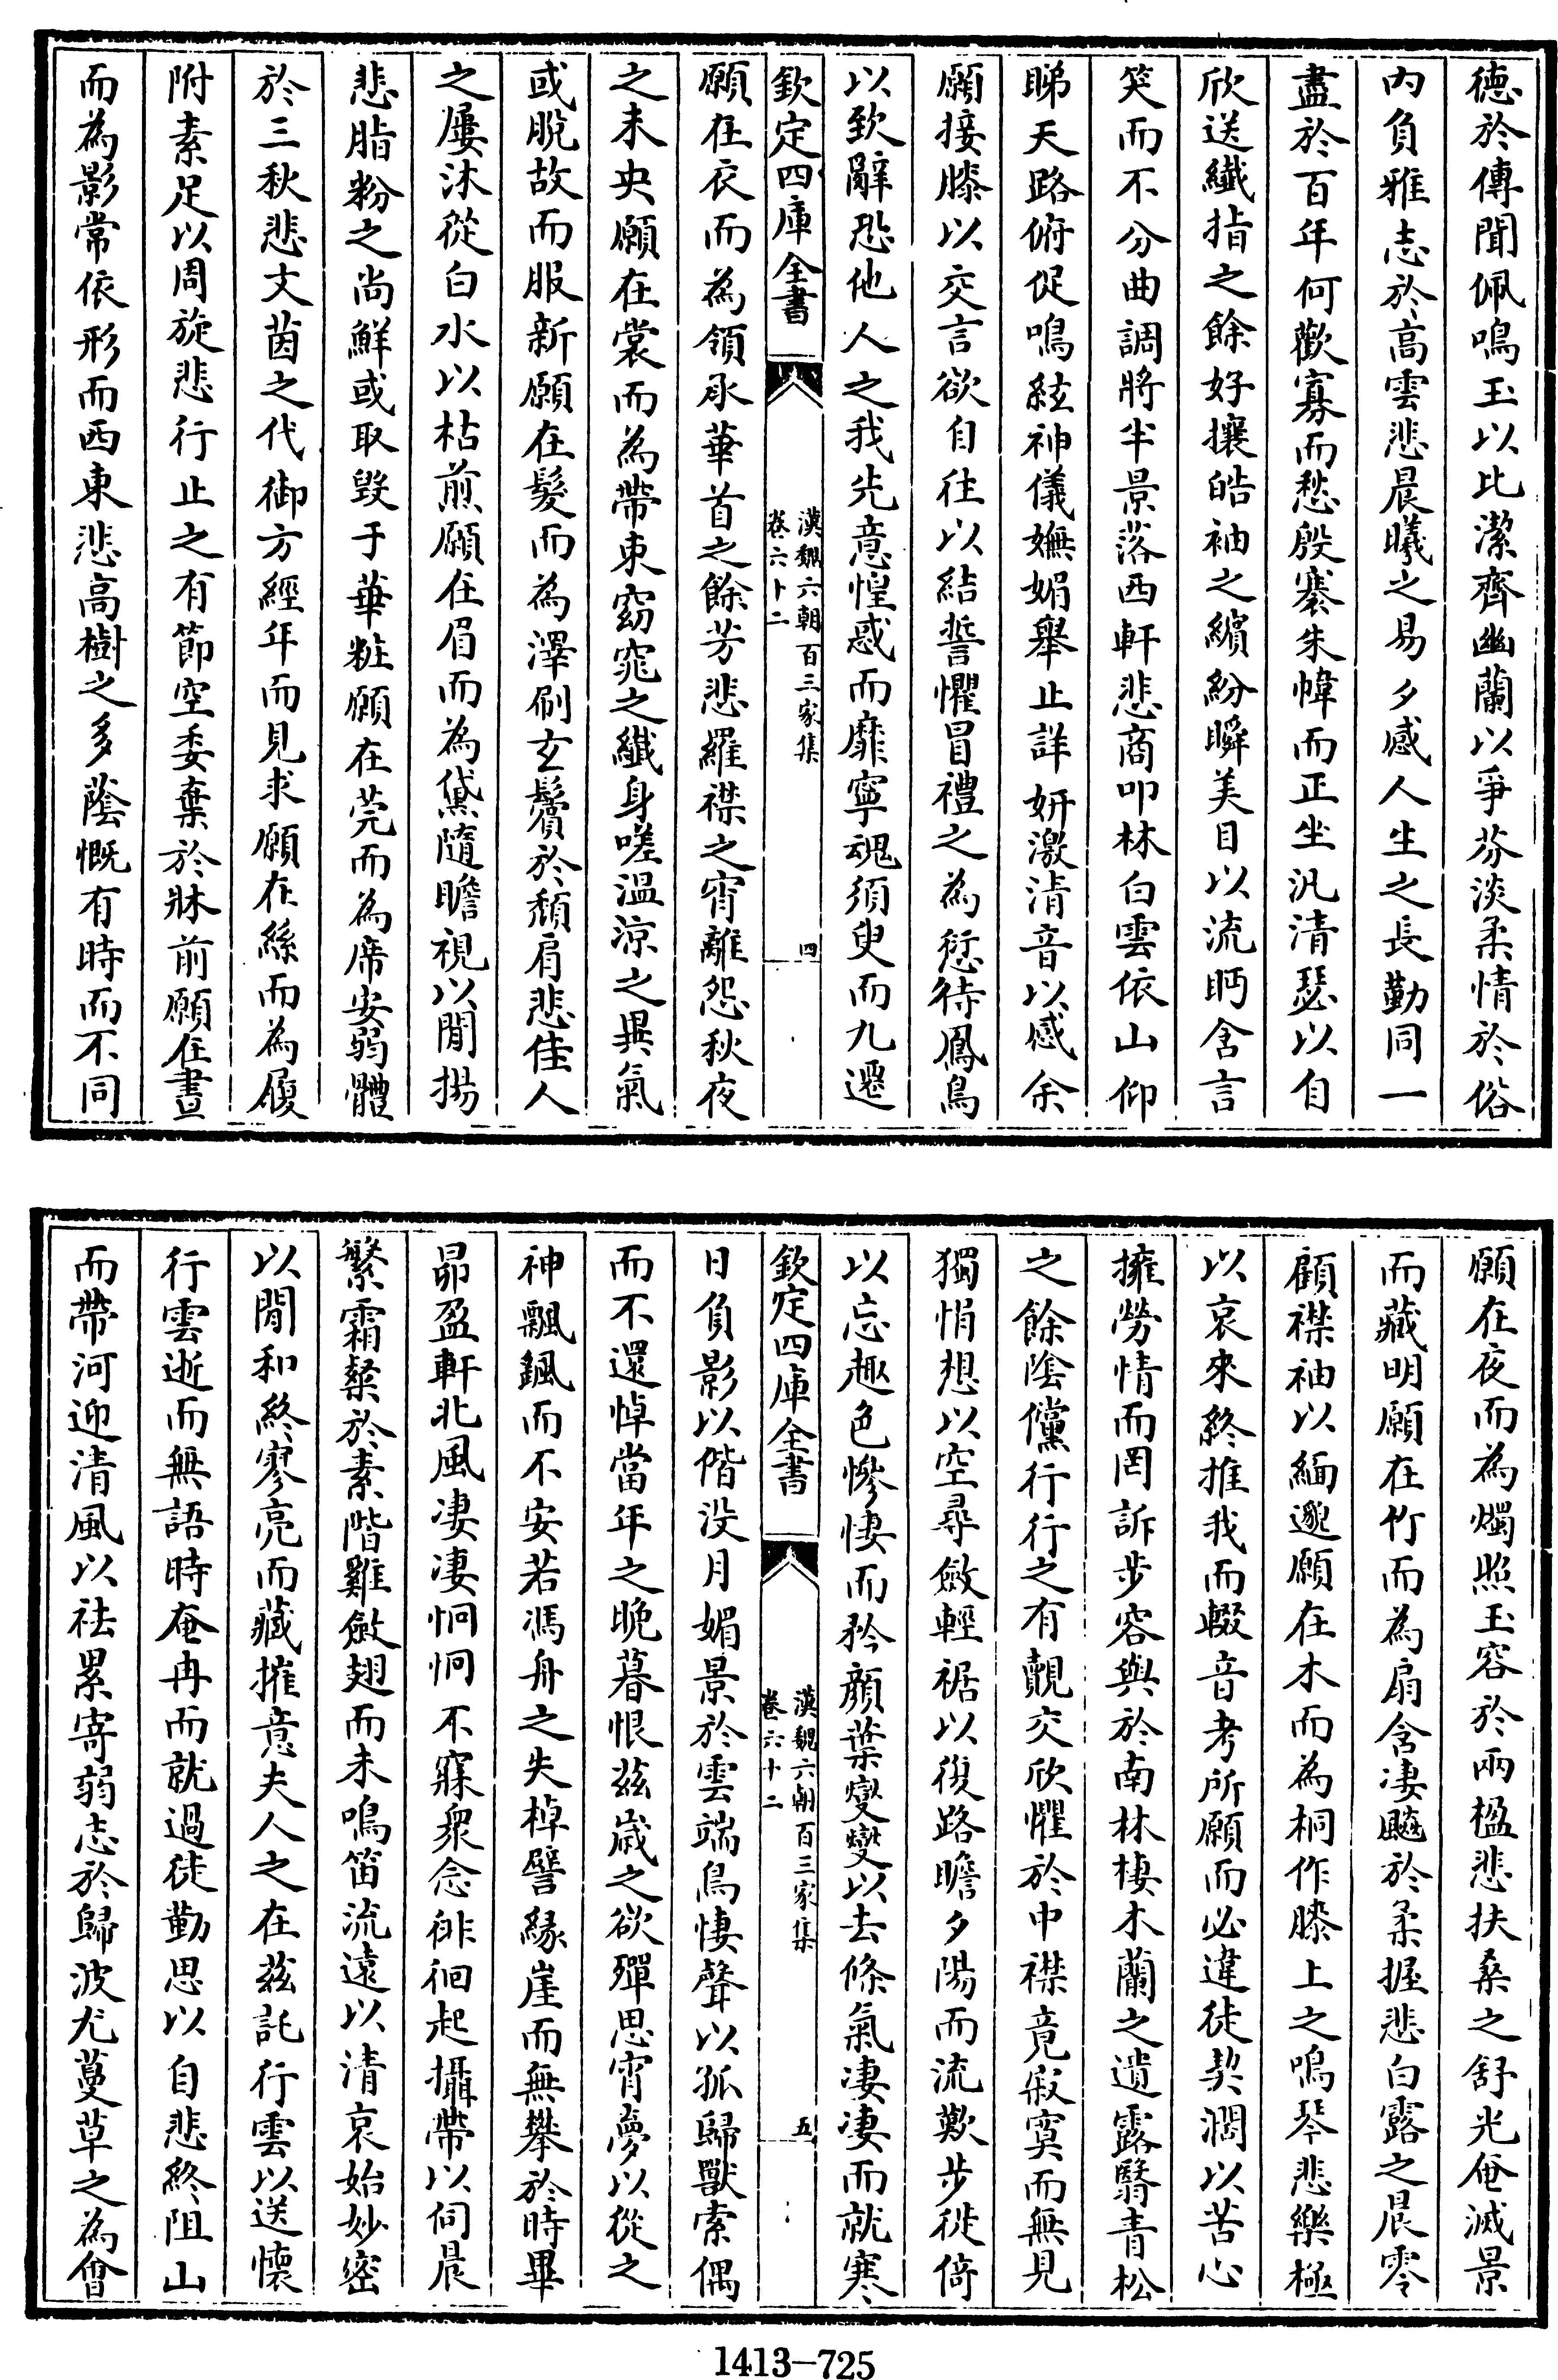 德於傳聞佩鳴玉以比潔齊幽蘭以爭芬淡柔情於俗
内負雅志於高雲悲晨曦之易夕感人生之長勤同一
盡於百年何歡寡而愁殷褰朱幃而正坐汎清瑟以自
欣送纎指之餘好攘皓袖之繽紛瞬美目以流眄含言
笑而不分曲調將半景落西軒悲商叩林白雲依山仰
睇天路俯促鳴絃神儀嫵媚舉止詳妍激清音以感余
願接膝以交言欲自往以結誓懼冒禮之為愆待鳳鳥
以致辭恐他人之我先意惶惑而靡寧魂須臾而九遷
欽定四庫全書
漢魏六朝百三家集
卷六十二
四
願在衣而為領承華首之餘芳悲羅襟之宵離怨秋夜
之未央願在裳而為帶束窈窕之纎身嗟温涼之異氣
或脫故而服新願在髮而為澤刷玄鬢於頹肩悲佳人
之屢沐從白水以枯煎願在眉而為黛隨瞻視以閒揚
悲脂粉之尚鮮或取毀于華粧願在莞而為席安弱體
於三秋悲文茵之代御方經年而見求願在絲而為履
附素足以周旋悲行止之有節空委棄於牀前願在晝
而為影常依形而西東悲高樹之多蔭慨有時而不同
願在夜而為燭照玉容於兩楹悲扶桑之舒光奄滅景
而藏明願在竹而為扇含淒飈於柔握悲白露之晨零
顧襟袖以緬邈願在木而為桐作膝上之鳴琴悲樂極
以哀來終推我而輟音考所願而必違徒契濶以苦心
擁勞情而罔訴步容與於南林棲木蘭之遺露翳青松
之餘陰儻行行之有覿交欣懼於中襟竟寂寞而無見
獨悁想以空尋斂輕裾以復路瞻夕陽而流歎步徙倚
以忘趣色慘悽而矜顏葉燮燮以去條氣凄凄而就寒
欽定四庫全書
漢魏六朝百三家集
卷六十二
五
日負影以偕没月媚景於雲端鳥悽聲以孤歸獸索偶
而不還悼當年之晚暮恨茲歲之欲殫思宵夢以從之
神飄颻而不安若馮舟之失棹譬緣崖而無攀於時畢
昴盈軒北風凄凄恫恫不寐衆念徘徊起攝帶以伺晨
繁霜粲於素階雞斂翅而未鳴笛流遠以清哀始妙密
以閒和終寥亮而藏摧意夫人之在茲託行雲以送懷
行雲逝而無語時奄冉而就過徒勤思以自悲終阻山
而帶河迎清風以祛累寄弱志於歸波尤蔓草之為㑹
1413—725